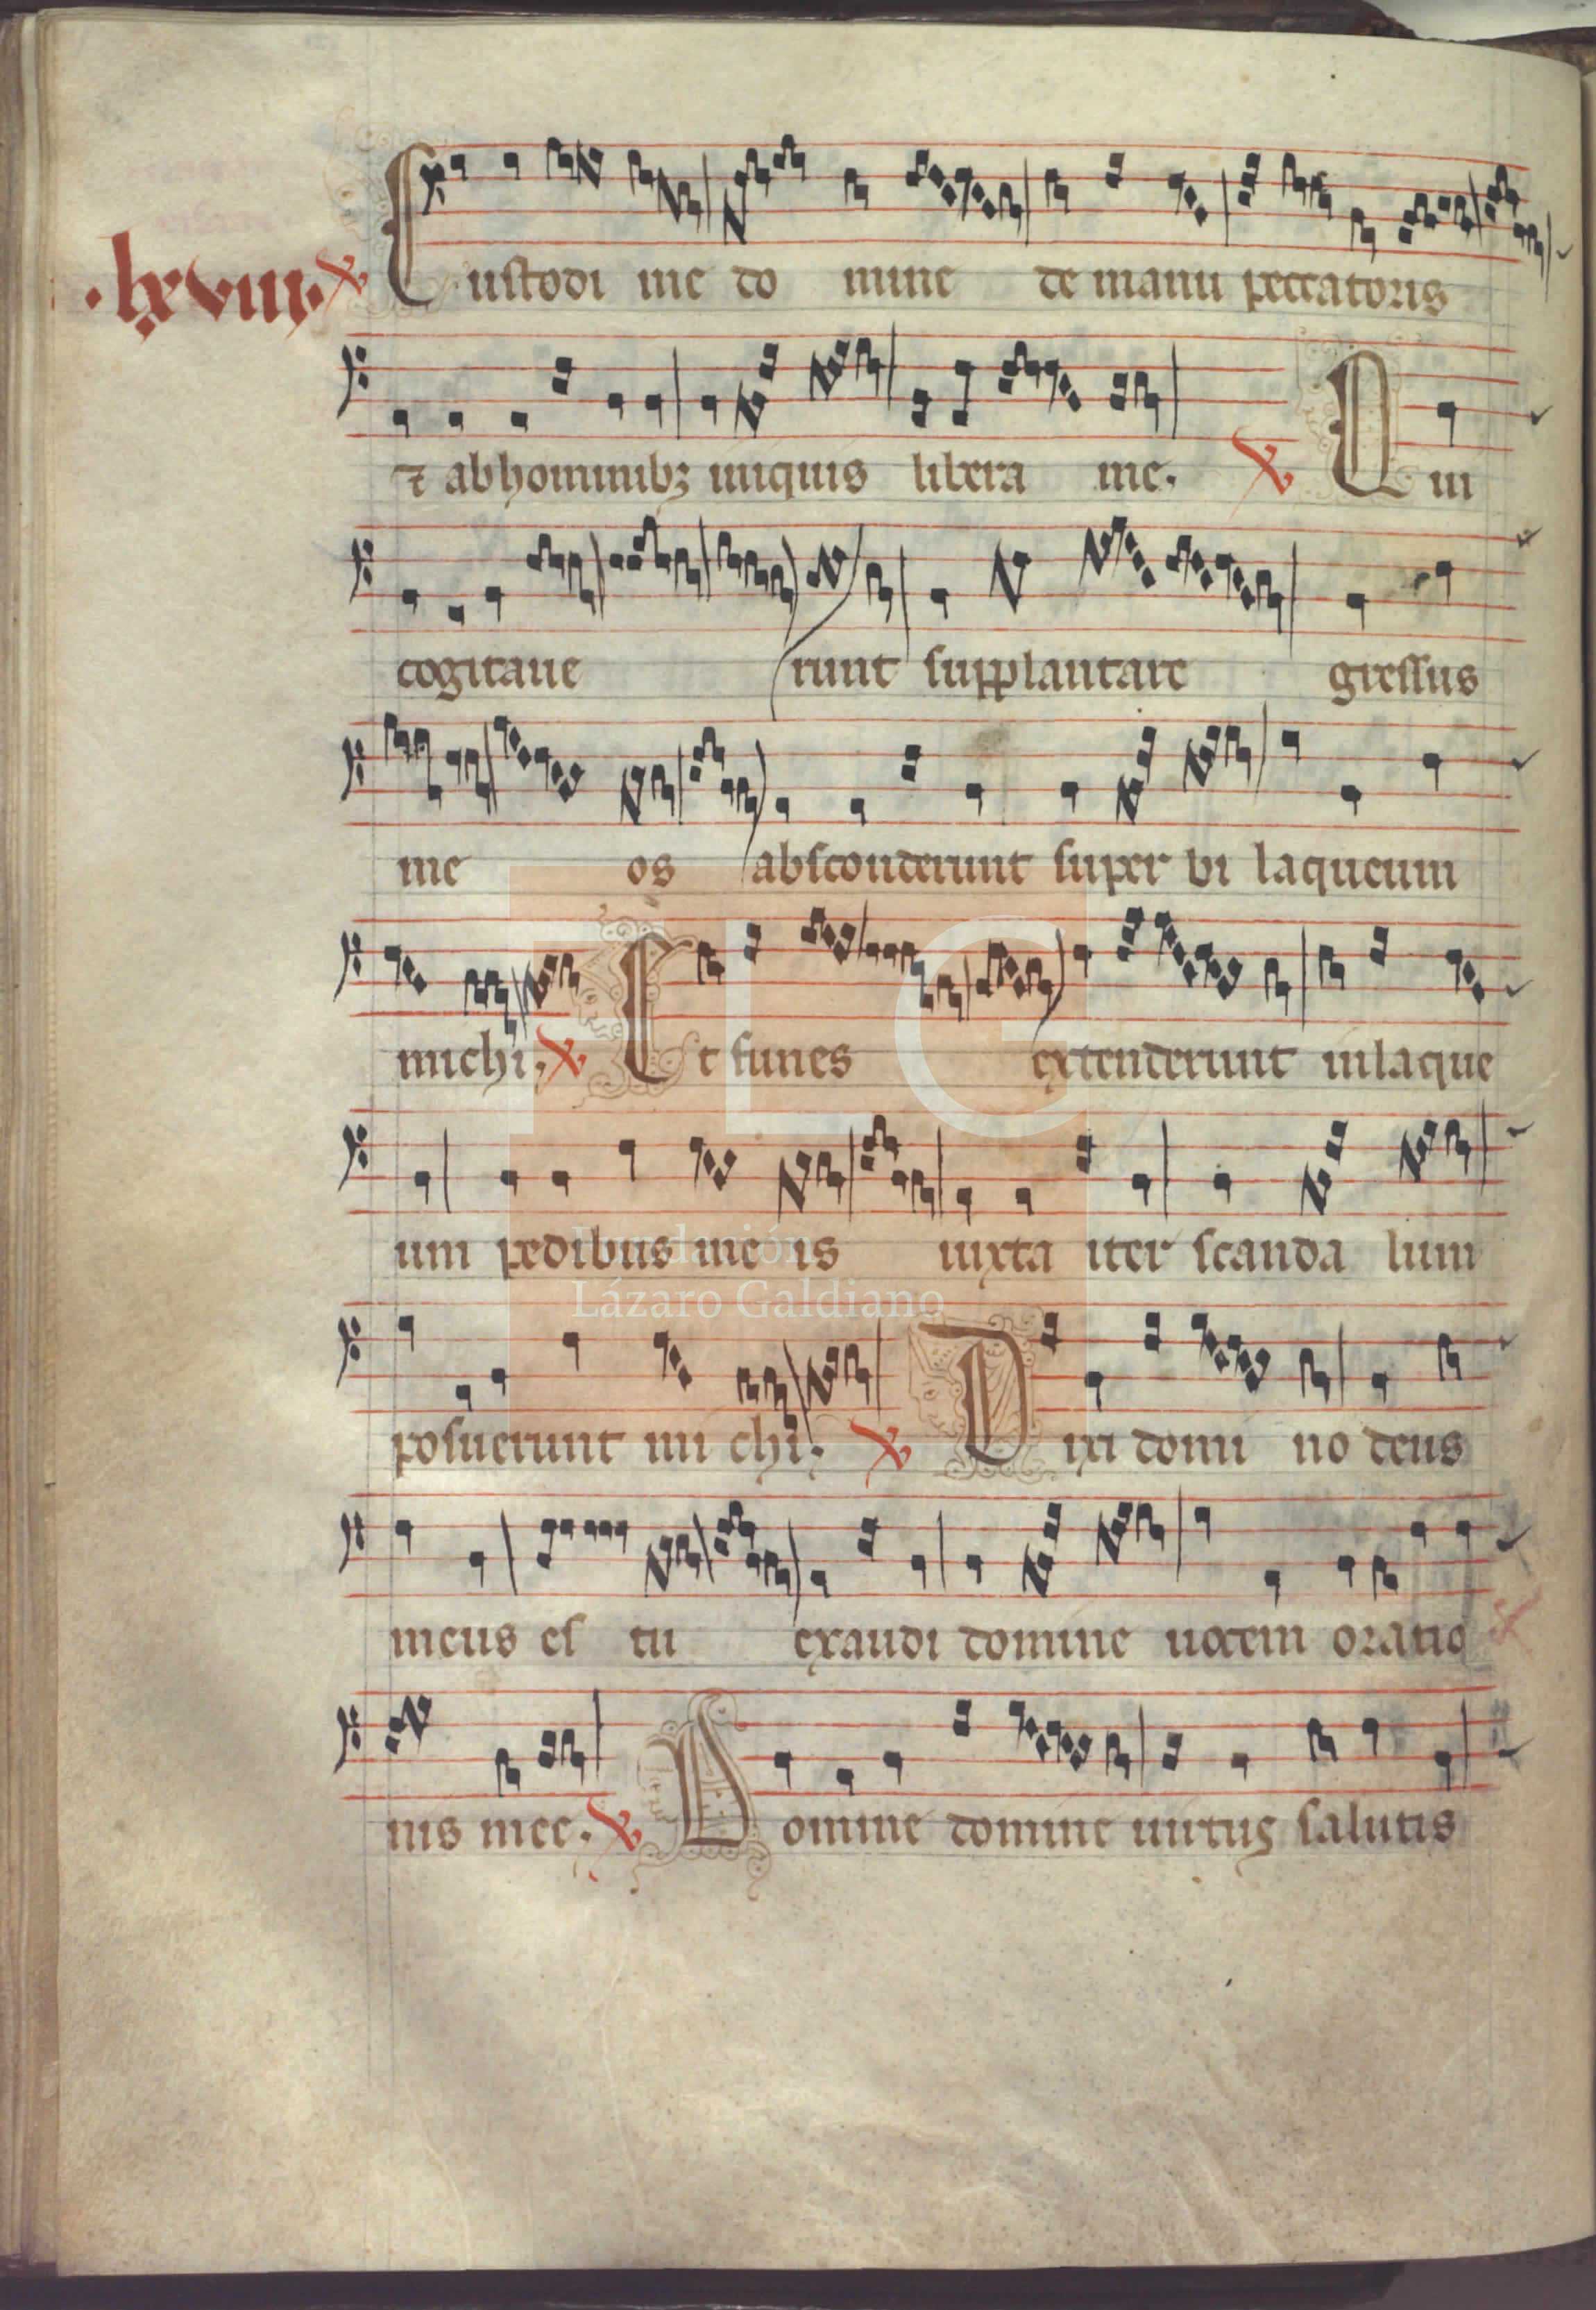 ·lxviii· Custodi me domine de manu peccatoris
⁊ ab hominibꝫ iniquis libera me. Qui
cogitaue runt supplantare gressus
me os absconderunt super bi laqueum
michi. Et funes extenderunt in laque
um pedibus me is iuxta iter scanda lum
Fundación
Lázaro Galdiano
posuerunt mi chi. Dixi domi no deus
meus es tu exaudi domine uocem oratio
nis mee. Domine domine uirtus salutis